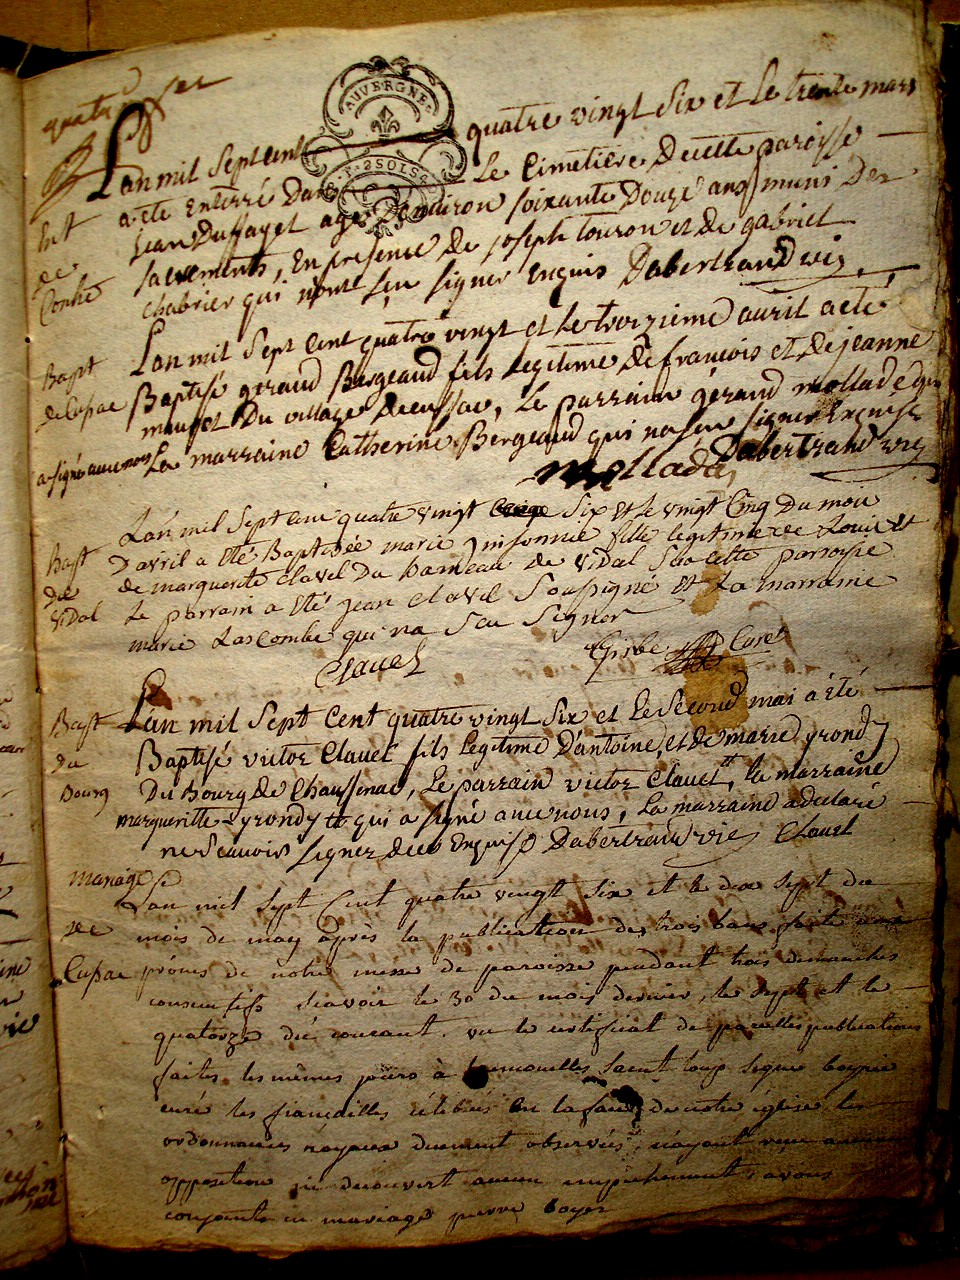 AUVERGNE
2 SOLS
L'an mil sept cent quatre vingt six et le trente mars
Ent a été enterré dans Le Cimetière de cette paroisse
de jean Duffayet agé d'environ soixante Douze ans muni Des
Conhe sacrements, En presence de joseph touron et de gabriel
chabrier qui n'ont sçu signer Enquis Dabertrand vic
Bapt L'an mil sept Cent quatre vingt et le troizieme avril a eté
de Cussac Baptisé geraud Bergeaud fils legitime de francois et de jeanne
du village de Cussac, Le parrain géraud mollade qui
a signé avec nous La marraine Catherine Bergeaud qui na sçu signer Enquise
Mollade Dabertrand vic
Lan mil sept cent quatre vingt six et le vingt Cinq Du mois
Bapt D'avril a eté Baptisée marie fille legitime de Louis et
de de marguerite Clavel Du hameau de Vidal Sur cette parroisse
Vidal Le parrain a eté jean Clavel Soussigné et La marraine
marie Lascombe qui na Sçu Signer
Clavel Girbe Curé
Bapt L'an mil sept Cent quatre vingt six et Le Second mai a été
du Baptisé victor Clavel fils Legitime D'antoine, et de marie yrondy
Bourg Du Bourg de Chaussenac, Le parrain victor Clavel, la marraine
margueritte yrondy qui a signé avec nous, La marraine a declaré
ne Scavoir Signer de ce Enquise Dabertrand vic Clavel
mariage L'an mil sept Cent quatre vingt six et le dix sept du
de mois de may après la publication des trois bans faite aux
Cussac prônes de notre messe de paroisse pendant trois dimanches
consecutifs sçavoir le 30 du mois dernier, le sept et le
quatorze du courant, vu le certificat de pareilles publications
faites les mêmes jours à tremouilles saint loup signé boyrie
curé les fiançailles célébrées en la face de notre église les
ordonnances royaux duement observées, n'ayant reçu aucune
opposition ni decouvert aucun empechement, avons
conjoints en mariage pierre boyer